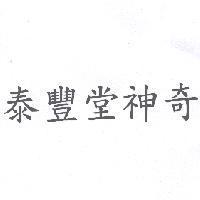 泰豐堂神奇